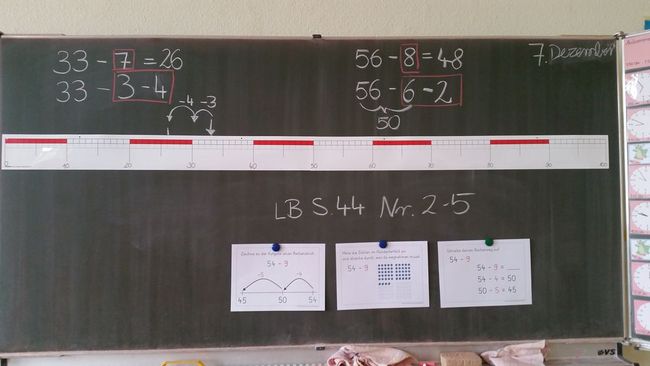 33 - 7 = 26
33 - 3 - 4
-4 -3
56 - 8 = 48
56 - 6 - 2
50
7. Dezember
0 10 20 30 40 50 60 70 80 90 100
LB S. 44 Nr. 2-5
54 - 9
-5 -9
45 50 54
54 - 9
54 - 9
54 - 9 = ___
54 - 4 = 50
50 - 5 = 45